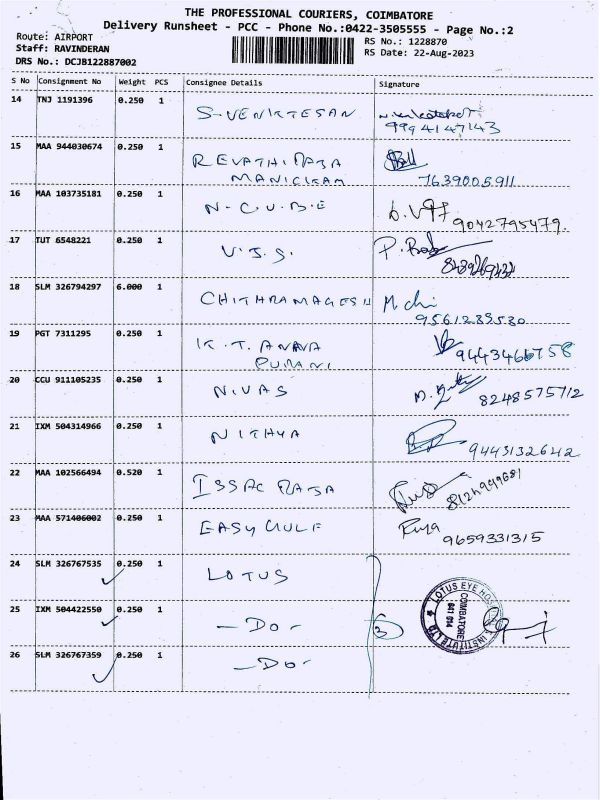 THE PROFESSIONAL COURIERS, COIMBATORE
Delivery Runsheet - PCC - Phone No.:0422-3505555 - Page No.:2
Route: AIRPORT
Staff: RAVINDERAN
DRS No.: DCJB122887002
RS No.: 1228870
RS Date: 22-Aug-2023
S No Consignment No Weight PCS Consignee Details Signature
14 TNJ 1191396 0.250 1 S-VENKTESAN
9994147143
15 MAA 944030674 0.250 1 REVATHI RAJA
MANICKAM 7639005911
16 MAA 103735181 0.250 1 N-C.U.B.E
9042795479.
17 TUT 6548221 0.250 1 V.J.S. P.
18 SLM 326794297 6.000 1 CHITHRAMAGESH M.
9561285530
19 PGT 7311295 0.250 1 K.T.
9443466758
20 CCU 911105235 0.250 1 NIVAS M. 8248575712
21 IXM 504314966 0.250 1 NITHYA
9443132642
22 MAA 102566494 0.520 1 ISSAC RAJA
8124949681
23 MAA 571406002 0.250 1 EASY
9659331315
24 SLM 326767535 0.250 1 LOTUS
25 IXM 504422550 0.250 1 -DO-
3
LOTUS EYE HOSPITAL & INSTITUTE LTD
COIMBATORE
641 014
26 SLM 326767359 0.250 1 -DO-